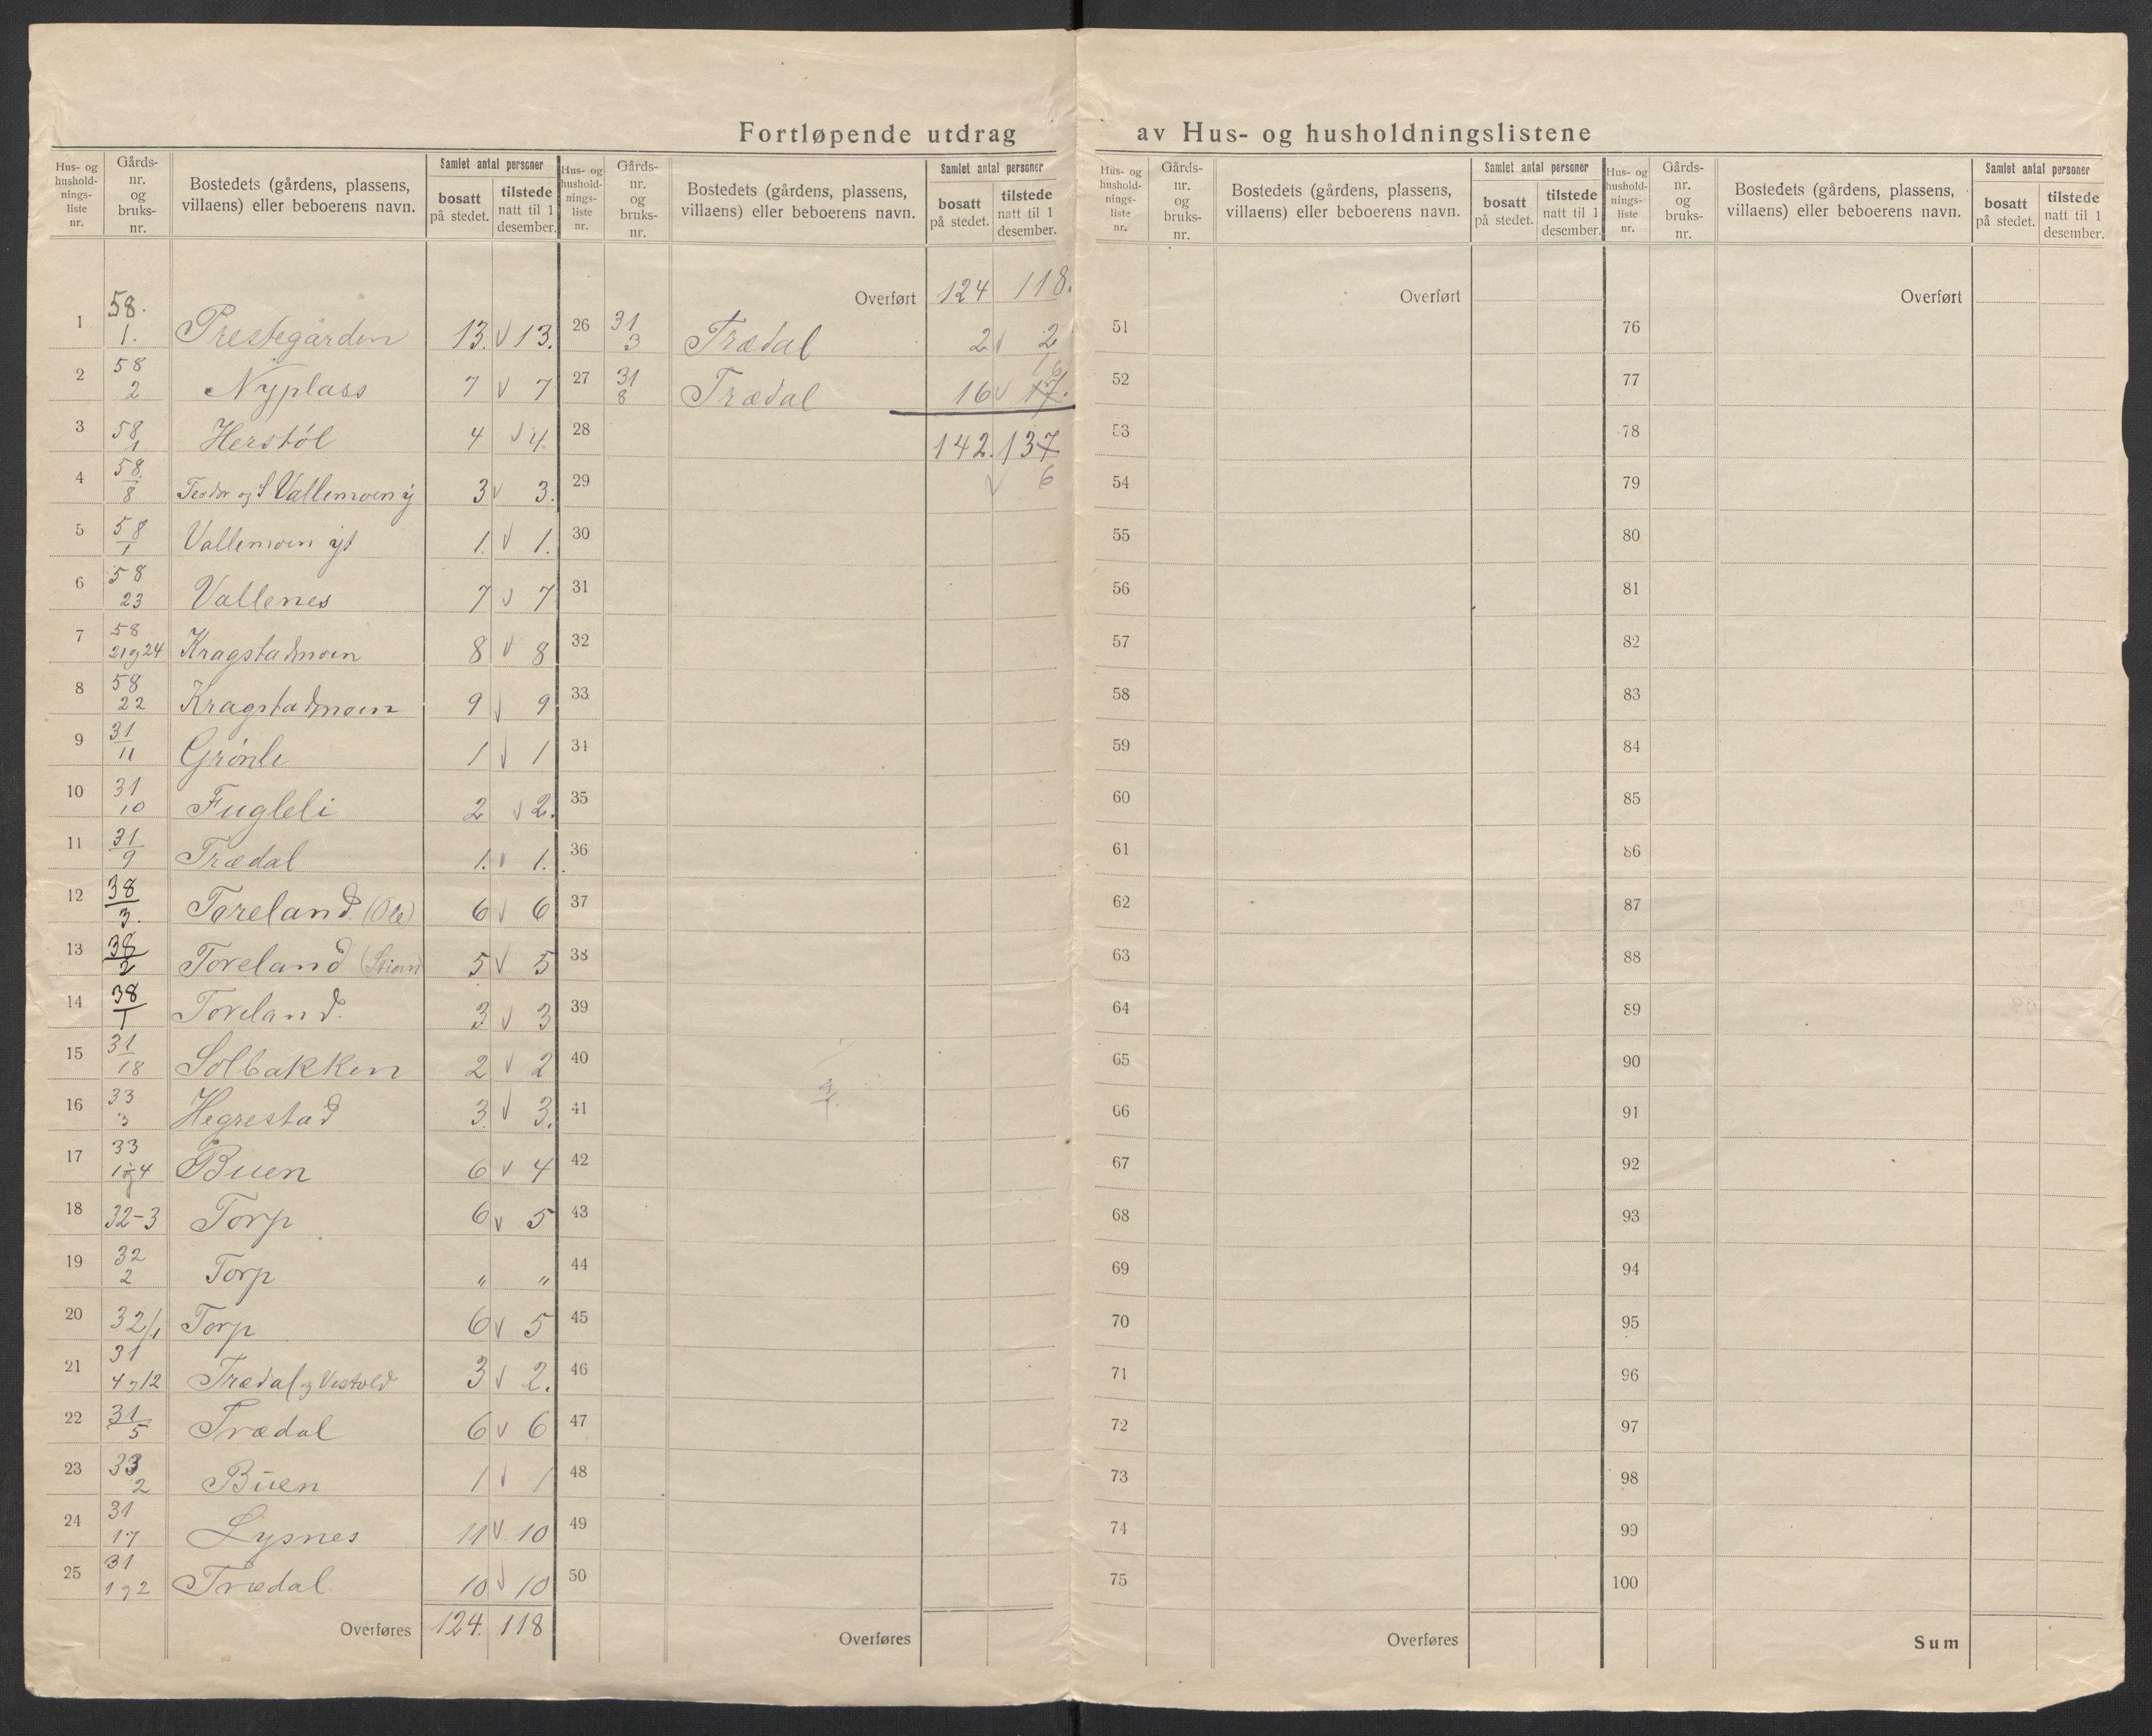 Fortløpende utdrag av Hus- og husholdningslistene
Hus- og hushold-nings-liste nr. Gårds-nr. og bruks-nr. Bostedets (gårdens, plassens, villaens) eller beboerens navn. Samlet antal personer bosatt på stedet. tilstede natt til 1 desember.
1 58. 1. Prestegården 13. v 13.
2 58 2 Nyplass 7 v 7
3 58 1 Herstøl 4 v 4.
4 58. 8 Teodor og S Vallemoen y 3 v 3.
5 58 1 Vallemoen yt 1. v 1.
6 58 23 Vallenes 7 v 7
7 58 21 og 24 Kragstadmoen 8 v 8
8 58 22 Kragstadmoen 9 v 9
9 31 11 Grønli 1 v 1
10 31 10 Fugleli 2 v 2.
11 31 9 Trædal 1. v 1.
12 38 3. Toreland (Ole) 6 v 6
13 38 2 Toreland 5 v 5
14 38 1 Toreland. 3 v 3
15 31 18 Solbakken 2 v 2
16 33 3 Hegrestad 3. v 3.
17 33 1 og 4 Buen 6 v 4
18 32-3 Torp 6 v 5
19 32 2 Torp " "
20 32/1 Torp 6 v 5
21 31 4 og 12 Trædal og Vestvold 3 v 2.
22 31 5 Trædal 6 v 6
23 33 2 Buen 1 v 1
24 31 17 Lysnes 11 v 10
25 31 1 og 2 Trædal. 10 v 10
Overføres 124. 118
Hus- og hushold-nings-liste nr. Gårds-nr. og bruks-nr. Bostedets (gårdens, plassens, villaens) eller beboerens navn. Samlet antal personer bosatt på stedet. tilstede natt til 1 desember.
Overført 124 118.
26 31 3 Trædal 2 v 2
27 31 8 Trædal 16 v 17. 6
28 142. 137
29 v 6
30
31
32
33
34
35
36
37
38
39
40
41
42
43
44
45
46
47
48
49
50
Overføres
Hus- og hushold-nings-liste nr. Gårds-nr. og bruks-nr. Bostedets (gårdens, plassens, villaens) eller beboerens navn. Samlet antal personer bosatt på stedet. tilstede natt til 1 desember.
Overført
51
52
53
54
55
56
57
58
59
60
61
62
63
64
65
66
67
68
69
70
71
72
73
74
75
Overføres
Hus- og hushold-nings-liste nr. Gårds-nr. og bruks-nr. Bostedets (gårdens, plassens, villaens) eller beboerens navn. Samlet antal personer bosatt på stedet. tilstede natt til 1 desember.
Overført
76
77
78
79
80
81
82
83
84
85
86
87
88
89
90
91
92
93
94
95
96
97
98
99
100
Sum